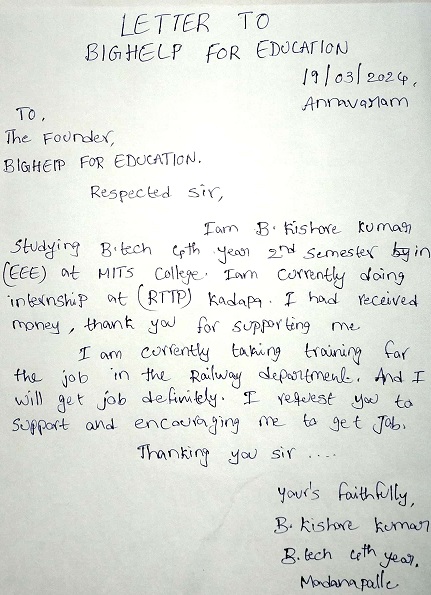 LETTER TO
BIGHELP FOR EDUCATION
19/03/2024,
Annavaram
To,
The Founder,
BIGHELP FOR EDUCATION.
Respected Sir,
Iam B. Kishore Kumar
Studying B.tech 4th year 2nd Semester in
(EEE) at MITS College. Iam currently doing
internship at (RTTP) Kadapa. I had received
money, thank you for supporting me
I am currently taking training for
the job in the Railway department. And I
will get job definitely. I request you to
Support and encouraging me to get Job.
Thanking you sir ....
your's faithfully,
B. Kishore Kumar
B.tech 4th year.
Madanapalle